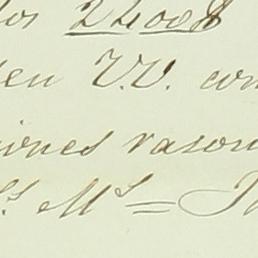 los 24008
en V.V. con
iones razon
S. Ms =